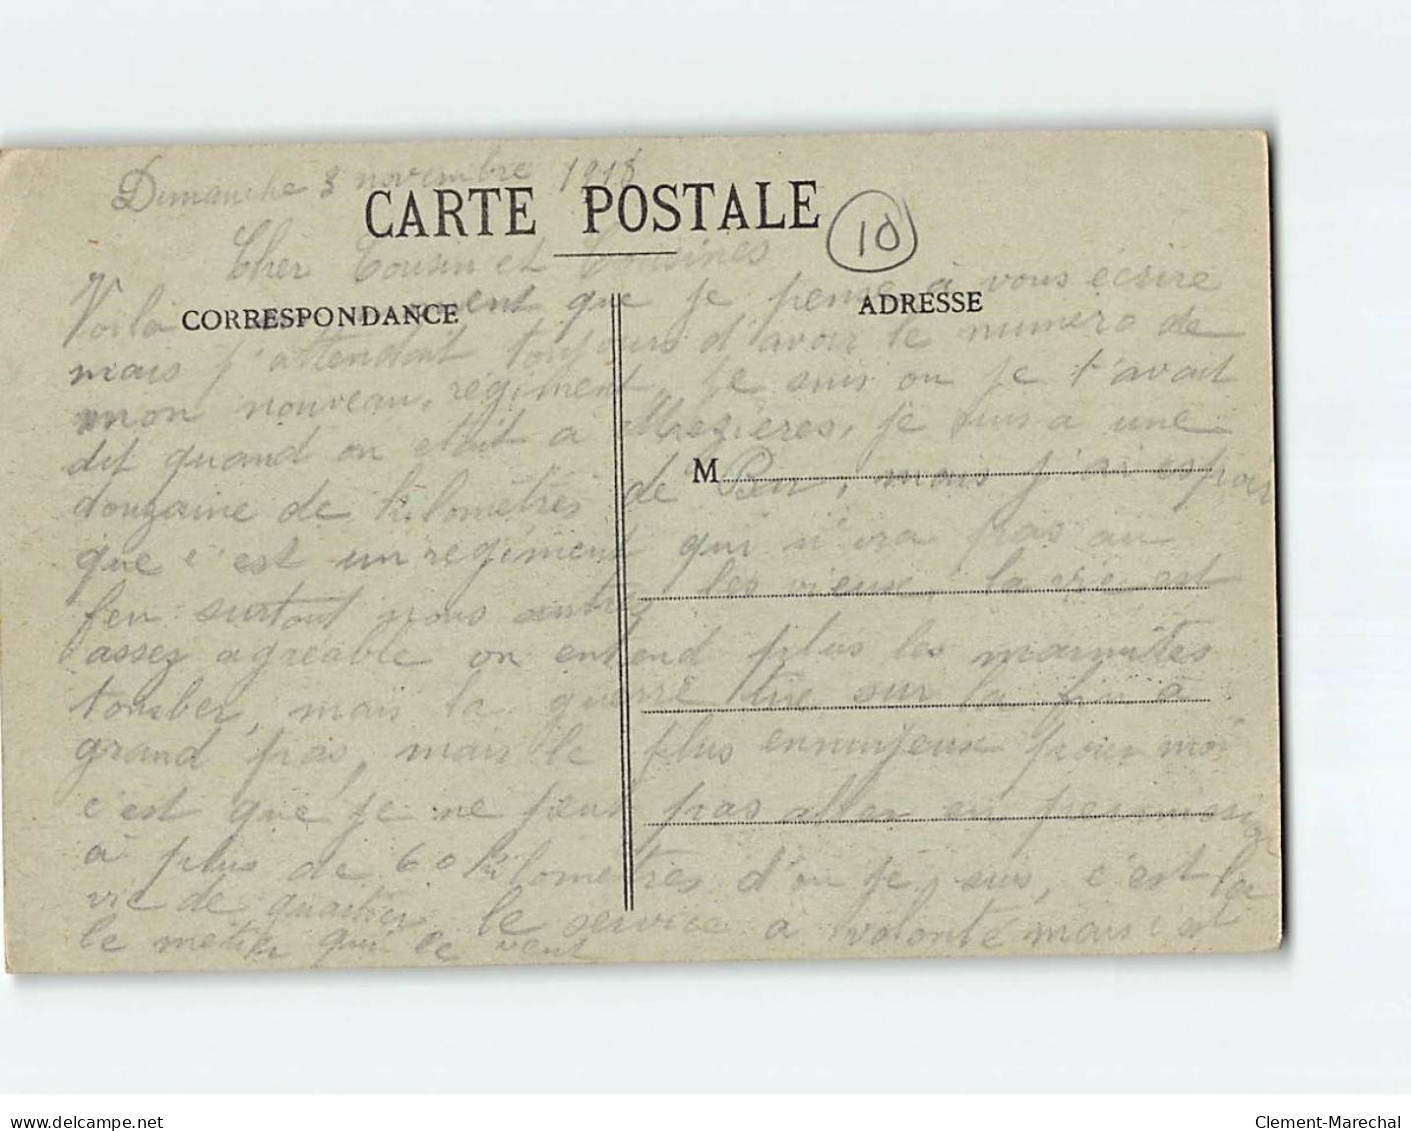 Dimanche 3 novembre 1918
CARTE POSTALE
10
Cher Cousin et Cousines
CORRESPONDANCE
ADRESSE
Voila un moment que je pense à vous écrire
mais j'attendait toujours d'avoir le numero de
mon nouveau, régiment, je suis ou je t'avait
dit quand on etait a Mezières, je suis a une
M
douzaine de kilometres de mais j'ai espoir
que c'est un regiment qui n'ira pas au
feu surtout nous autres les vieux, la vie est
assez agreable on entend plus les marmites
tomber, mais la guerre tire sur la fin à
grand pas, mais le plus ennuyeux pour moi
c'est que je ne peux pas aller en permission
à plus de 60 kilometres d'ou je suis, c'est la
vie de quartier, le service a volonté mais c'est
le métier qui le veut
delcampe.net
Clement-Marechal